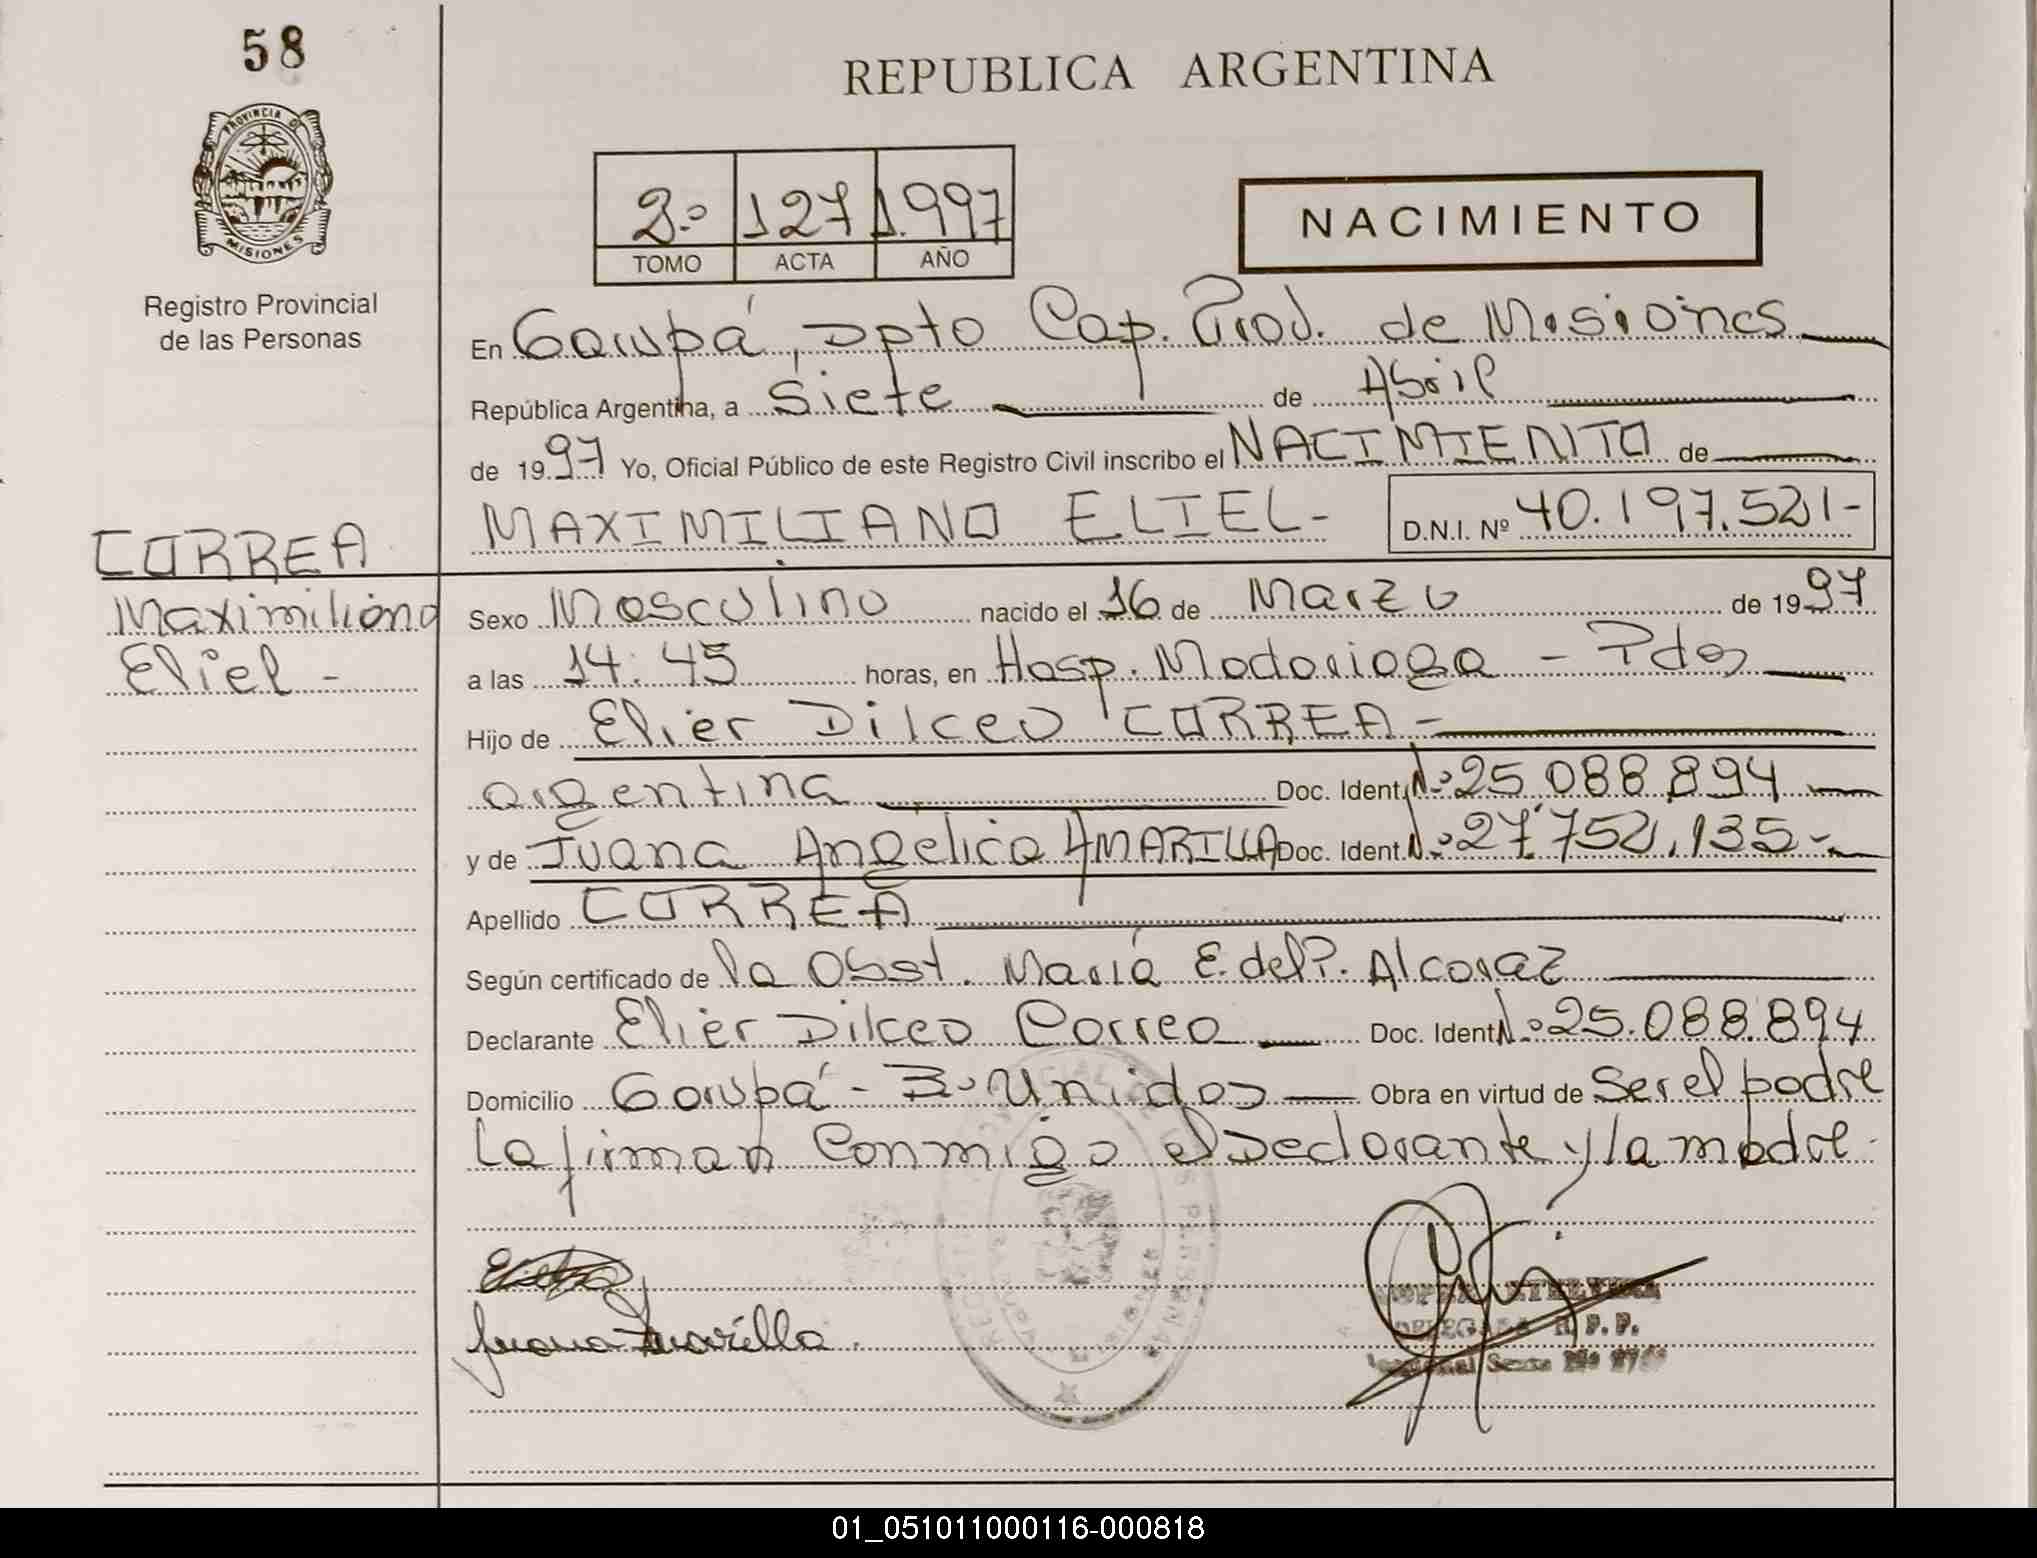 58
PROVINCIA DE
MISIONES
Registro Provincial
de las Personas
REPUBLICA ARGENTINA
2.º 127 1.997
TOMO ACTA AÑO
NACIMIENTO
En Garupá, Dpto Cap. Prov. de Misiones
República Argentina, a Siete de Abril
de 1997 Yo, Oficial Público de este Registro Civil inscribo el NACIMIENTO de
MAXIMILIANO ELIEL- D.N.I. Nº 40.197.521-
CORREA
Maximiliano
Eliel -
Sexo Masculino nacido el 16 de Marzo de 1997
a las 14:45 horas, en Hosp. Madariaga - Pdas
Hijo de Elier Dilceo CORREA -
argentina Doc. Ident. Nº 25.088.894
y de Juana Angélica AMARILLA Doc. Ident. Nº 27.752.135-
Apellido CORREA
Según certificado de la Obst. María E. del P. Alcaraz
Declarante Elier Dilceo Correa Doc. Ident. Nº 25.088.894
Domicilio Garupá - Bº Unidos Obra en virtud de Ser el padre
La firman Conmigo el Declarante y la madre-
Juana Amarilla.
DELEGADA R.P.P.
01_051011000116-000818